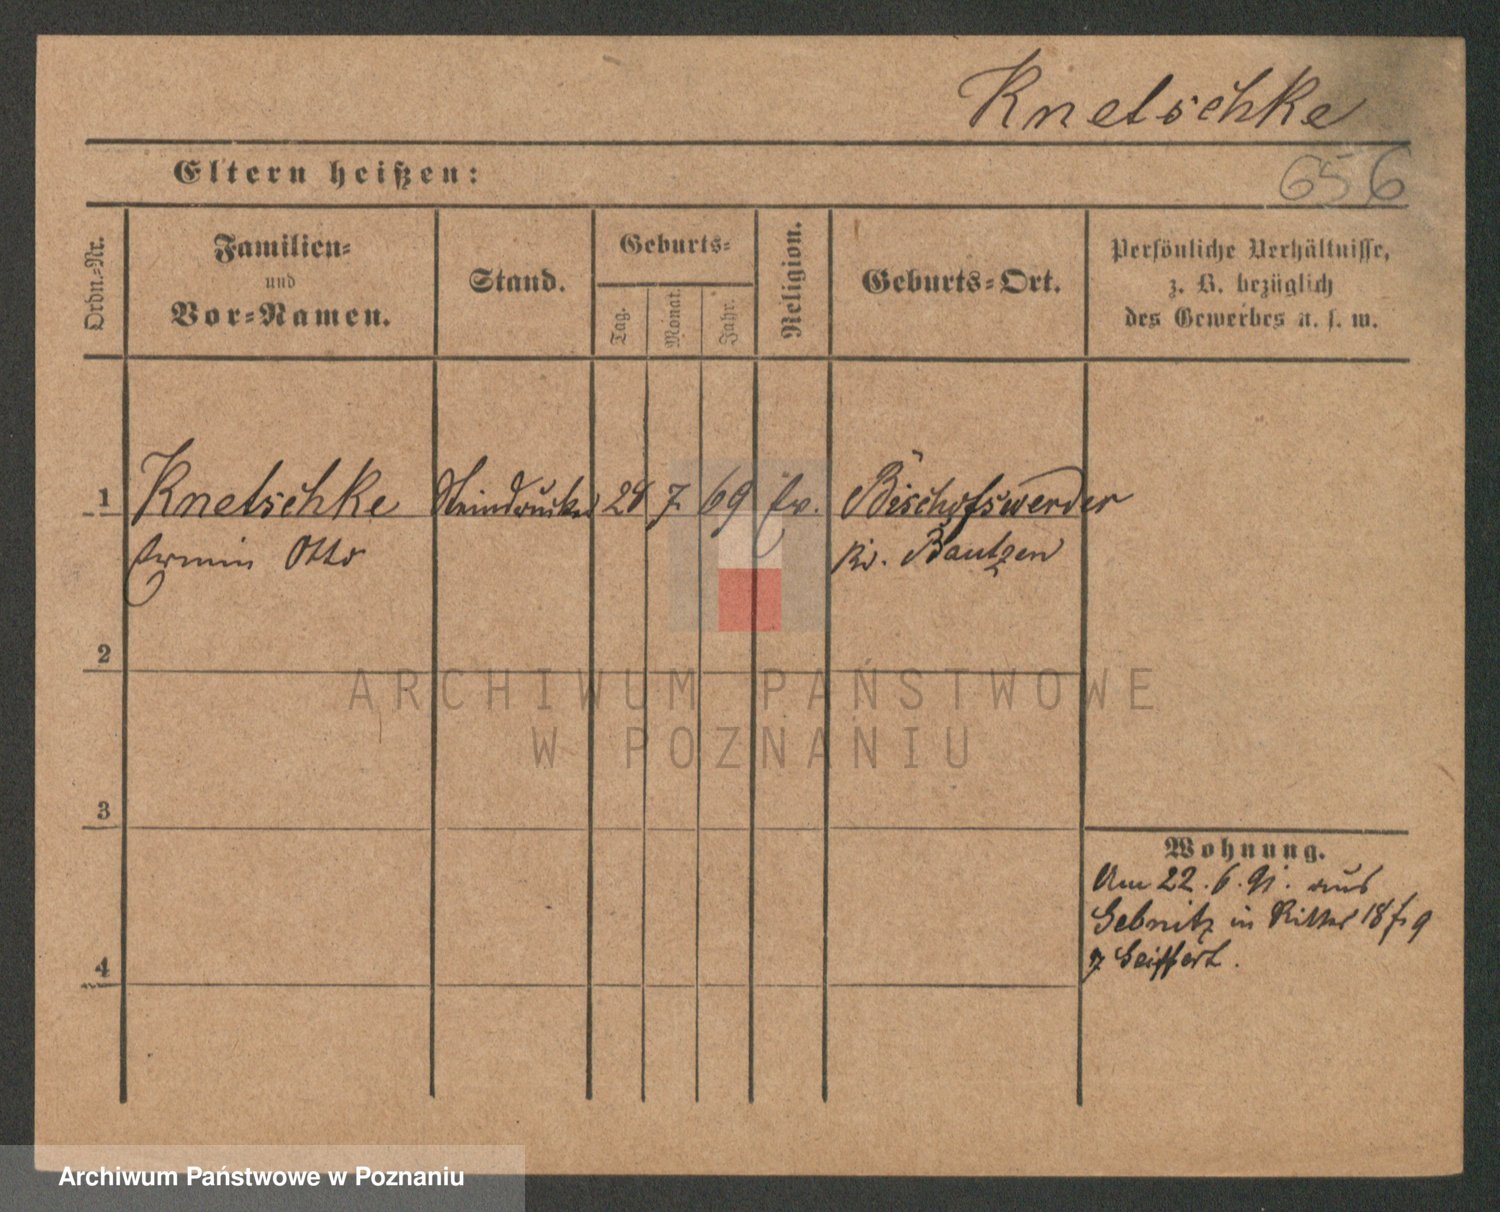 Knetschke
656
Eltern heißen:
Ordn.=Nr.
Familien=
und
Vor=Namen.
Stand.
Geburts=
Tag.
Monat.
Jahr.
Religion.
Geburts=Ort.
Persönliche Verhältnisse,
z. B. bezüglich
des Gewerbes u. s. w.
1 Knetschke Steindrucker 28 7 69 ev. Bischofswerder
Otto Bautzen
2
3
4
ARCHIWUM PAŃSTWOWE
W POZNANIU
Wohnung.
Am 22. 6. 91. aus
Sebnitz in Ritter 18
Seiffert.
Archiwum Państwowe w Poznaniu